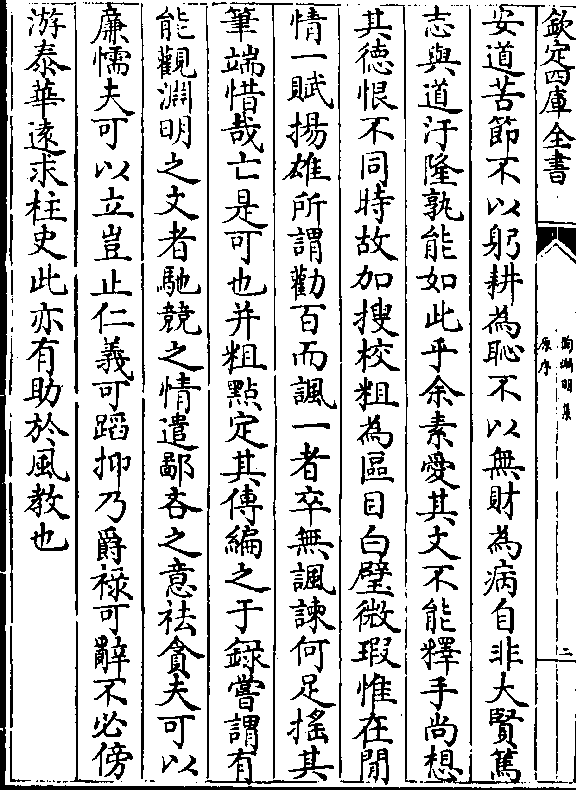 欽定四庫全書
陶淵明集
原序
二
安道苦節不以躬耕為恥不以無財為病自非大賢篤
志與道汙隆孰能如此乎余素愛其文不能釋手尚想
其徳恨不同時故加搜校粗為區目白璧微瑕惟在閒
情一賦揚雄所謂勸百而諷一者卒無諷諫何足揺其
筆端惜哉亡是可也并粗㸃定其傳編之于録嘗謂有
能觀淵明之文者馳競之情遣鄙吝之意祛貪夫可以
廉懦夫可以立豈止仁義可蹈抑乃爵禄可辭不必傍
游泰華逺求柱史此亦有助於風教也